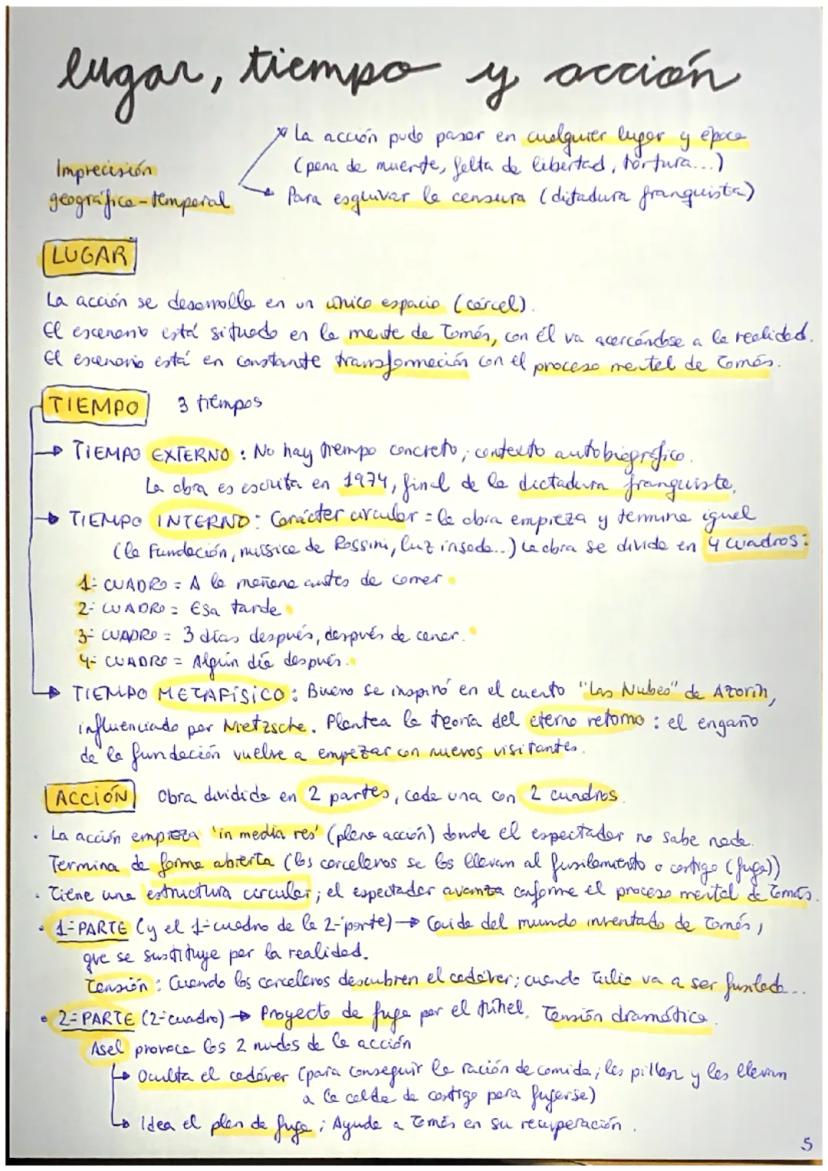 lugar, tiempo y acción
Imprecisión geográfico-temporal
→ La acción pudo pasar en cualquier lugar y época
(pena de muerte, falta de libertad, tortura...)
→ Para esquivar la censura (ditadura franquista)
LUGAR
La acción se desarrolla en un único espacio (cárcel).
El escenario está situado en la mente de Tomás, con él va acercándose a la realidad.
El escenario está en constante transformación con el proceso mental de Tomás.
TIEMPO 3 tiempos
→ TIEMPO EXTERNO: No hay tiempo concreto, contexto autobiográfico.
La obra es escrita en 1974, final de la dictadura franquista.
→ TIEMPO INTERNO: Carácter circular = la obra empieza y termina igual
(la Fundación, música de Rossini, luz irisada...) La obra se divide en 4 cuadros:
1º CUADRO = A la mañana antes de comer.
2º CUADRO = Esa tarde.
3º CUADRO = 3 días después, después de cenar.
4º CUADRO = Algún día después.
→ TIEMPO METAFÍSICO: Buero se inspiró en el cuento "Las Nubes" de Azorín,
influenciado por Nietzsche. Plantea la teoría del eterno retorno: el engaño
de la fundación vuelve a empezar con nuevos visitantes.
ACCIÓN Obra dividida en 2 partes, cada una con 2 cuadros.
· La acción empieza 'in media res' (plena acción) donde el espectador no sabe nada.
Termina de forma abierta (los carceleros se los llevan al fusilamiento o castigo (fuga))
· Tiene una estructura circular; el espectador avanza conforme el proceso mental de Tomás.
· 1ª PARTE (y el 1º cuadro de la 2ª parte) → Caída del mundo inventado de Tomás,
que se sustituye por la realidad.
Tensión: Cuando los carceleros descubren el cadáver; cuando Tulio va a ser fusilado...
· 2ª PARTE (2º cuadro) → Proyecto de fuga por el túnel. Tensión dramática.
Asel provoca los 2 nudos de la acción
→ Oculta el cadáver (para conseguir la ración de comida; les pillan y les llevan
a la celda de castigo para fugarse)
→ Idea el plan de fuga; Ayuda a Tomás en su recuperación.
5